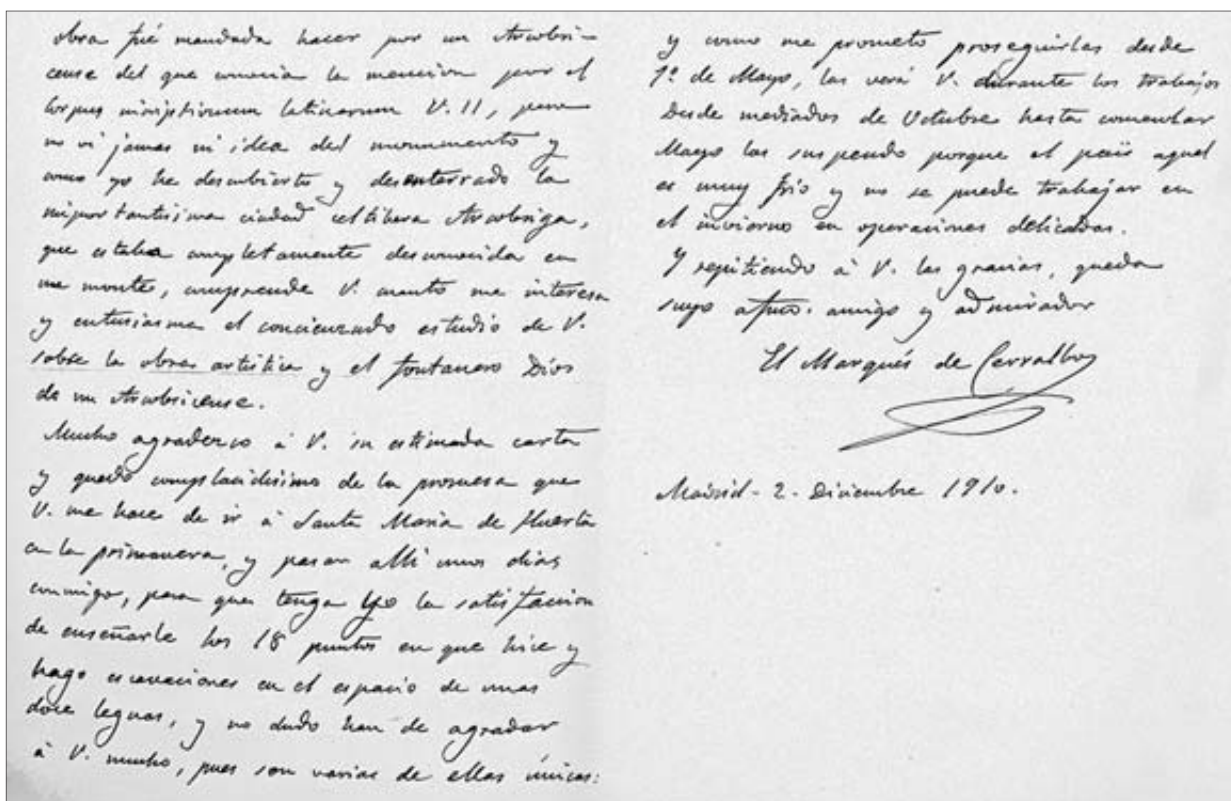 obra fué mandada hacer por un Arcobri-
cense del que conocia la mencion por el
Corpus inscriptionum latinarum V. II, pero
no vi jamas ni idea del monumento y
como yo he descubierto y desenterrado la
importantisima ciudad celtibera Arcobriga,
que estaba completamente desconocida en
un monte, comprende V. cuanto me interesa
y entusiasma el concienzudo estudio de V.
sobre la obra artistica y el fontanero Dios
de un Arcobricense.
Mucho agradezco á V. su estimada carta
y quedo complacidisimo de la promesa que
V. me hace de ir á Santa Maria de Huerta
en la primavera, y pasar alli unos dias
conmigo, para que tenga yo la satisfaccion
de enseñarle los 18 puntos en que hice y
hago escavaciones en el espacio de unas
doce leguas, y no dudo han de agradar
á V. mucho, pues son varias de ellas únicas:
y como me prometo proseguirlas desde
1º de Mayo, las verá V. durante los trabajos
Desde mediados de Octubre hasta comenzar
Mayo las suspendo porque el país aquel
es muy frio y no se puede trabajar en
el invierno en operaciones delicadas.
Y repitiendo á V. las gracias, queda
suyo afmo. amigo y admirador
El Marqués de Cerralbo
Madrid - 2 - Diciembre 1910.